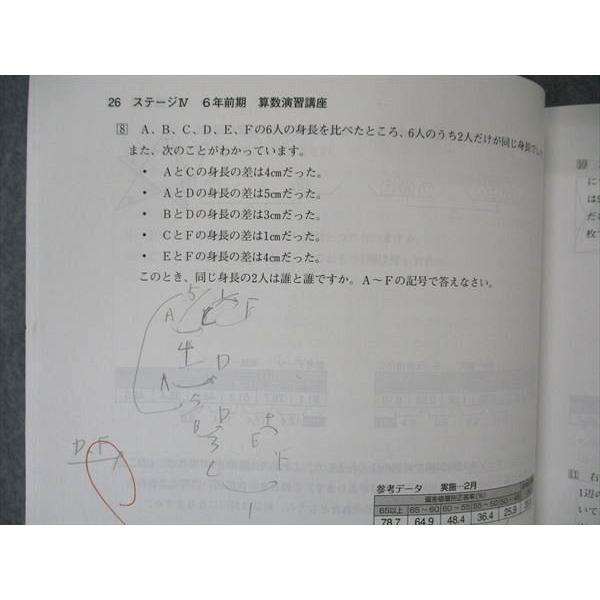 26 ステージⅣ 6年前期 算数演習講座
8 A、B、C、D、E、Fの6人の身長を比べたところ、6人のうち2人だけが同じ身長でし
また、次のことがわかっています。
・ AとCの身長の差は4cmだった。
・ AとDの身長の差は5cmだった。
・ BとDの身長の差は3cmだった。
・ CとFの身長の差は1cmだった。
・ EとFの身長の差は4cmだった。
このとき、同じ身長の2人は誰と誰ですか。A〜Fの記号で答えなさい。
5 1
A C F
4
A D
5
B D
3
E
C F
1
D F
参考データ 実施…2月
偏差値層別正答率(%)
65以上 65〜60 60〜55 55〜50 50〜45
78.7 64.9 48.4 36.4 25.9
10
に
は
だ
枚
11 右
1辺の
いて